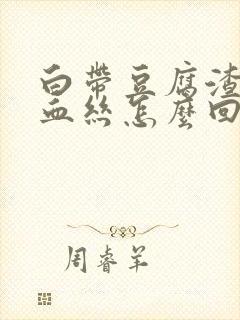 白帶豆腐渣
血絲怎麼回
周睿羊